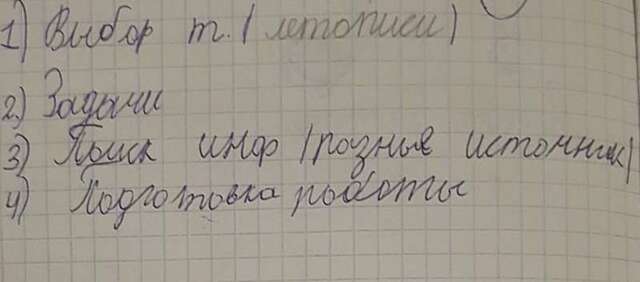 1) Выбор т. (летописи)
2) Задачи
3) Поиск инф (разные источник)
4) Подготовка работы